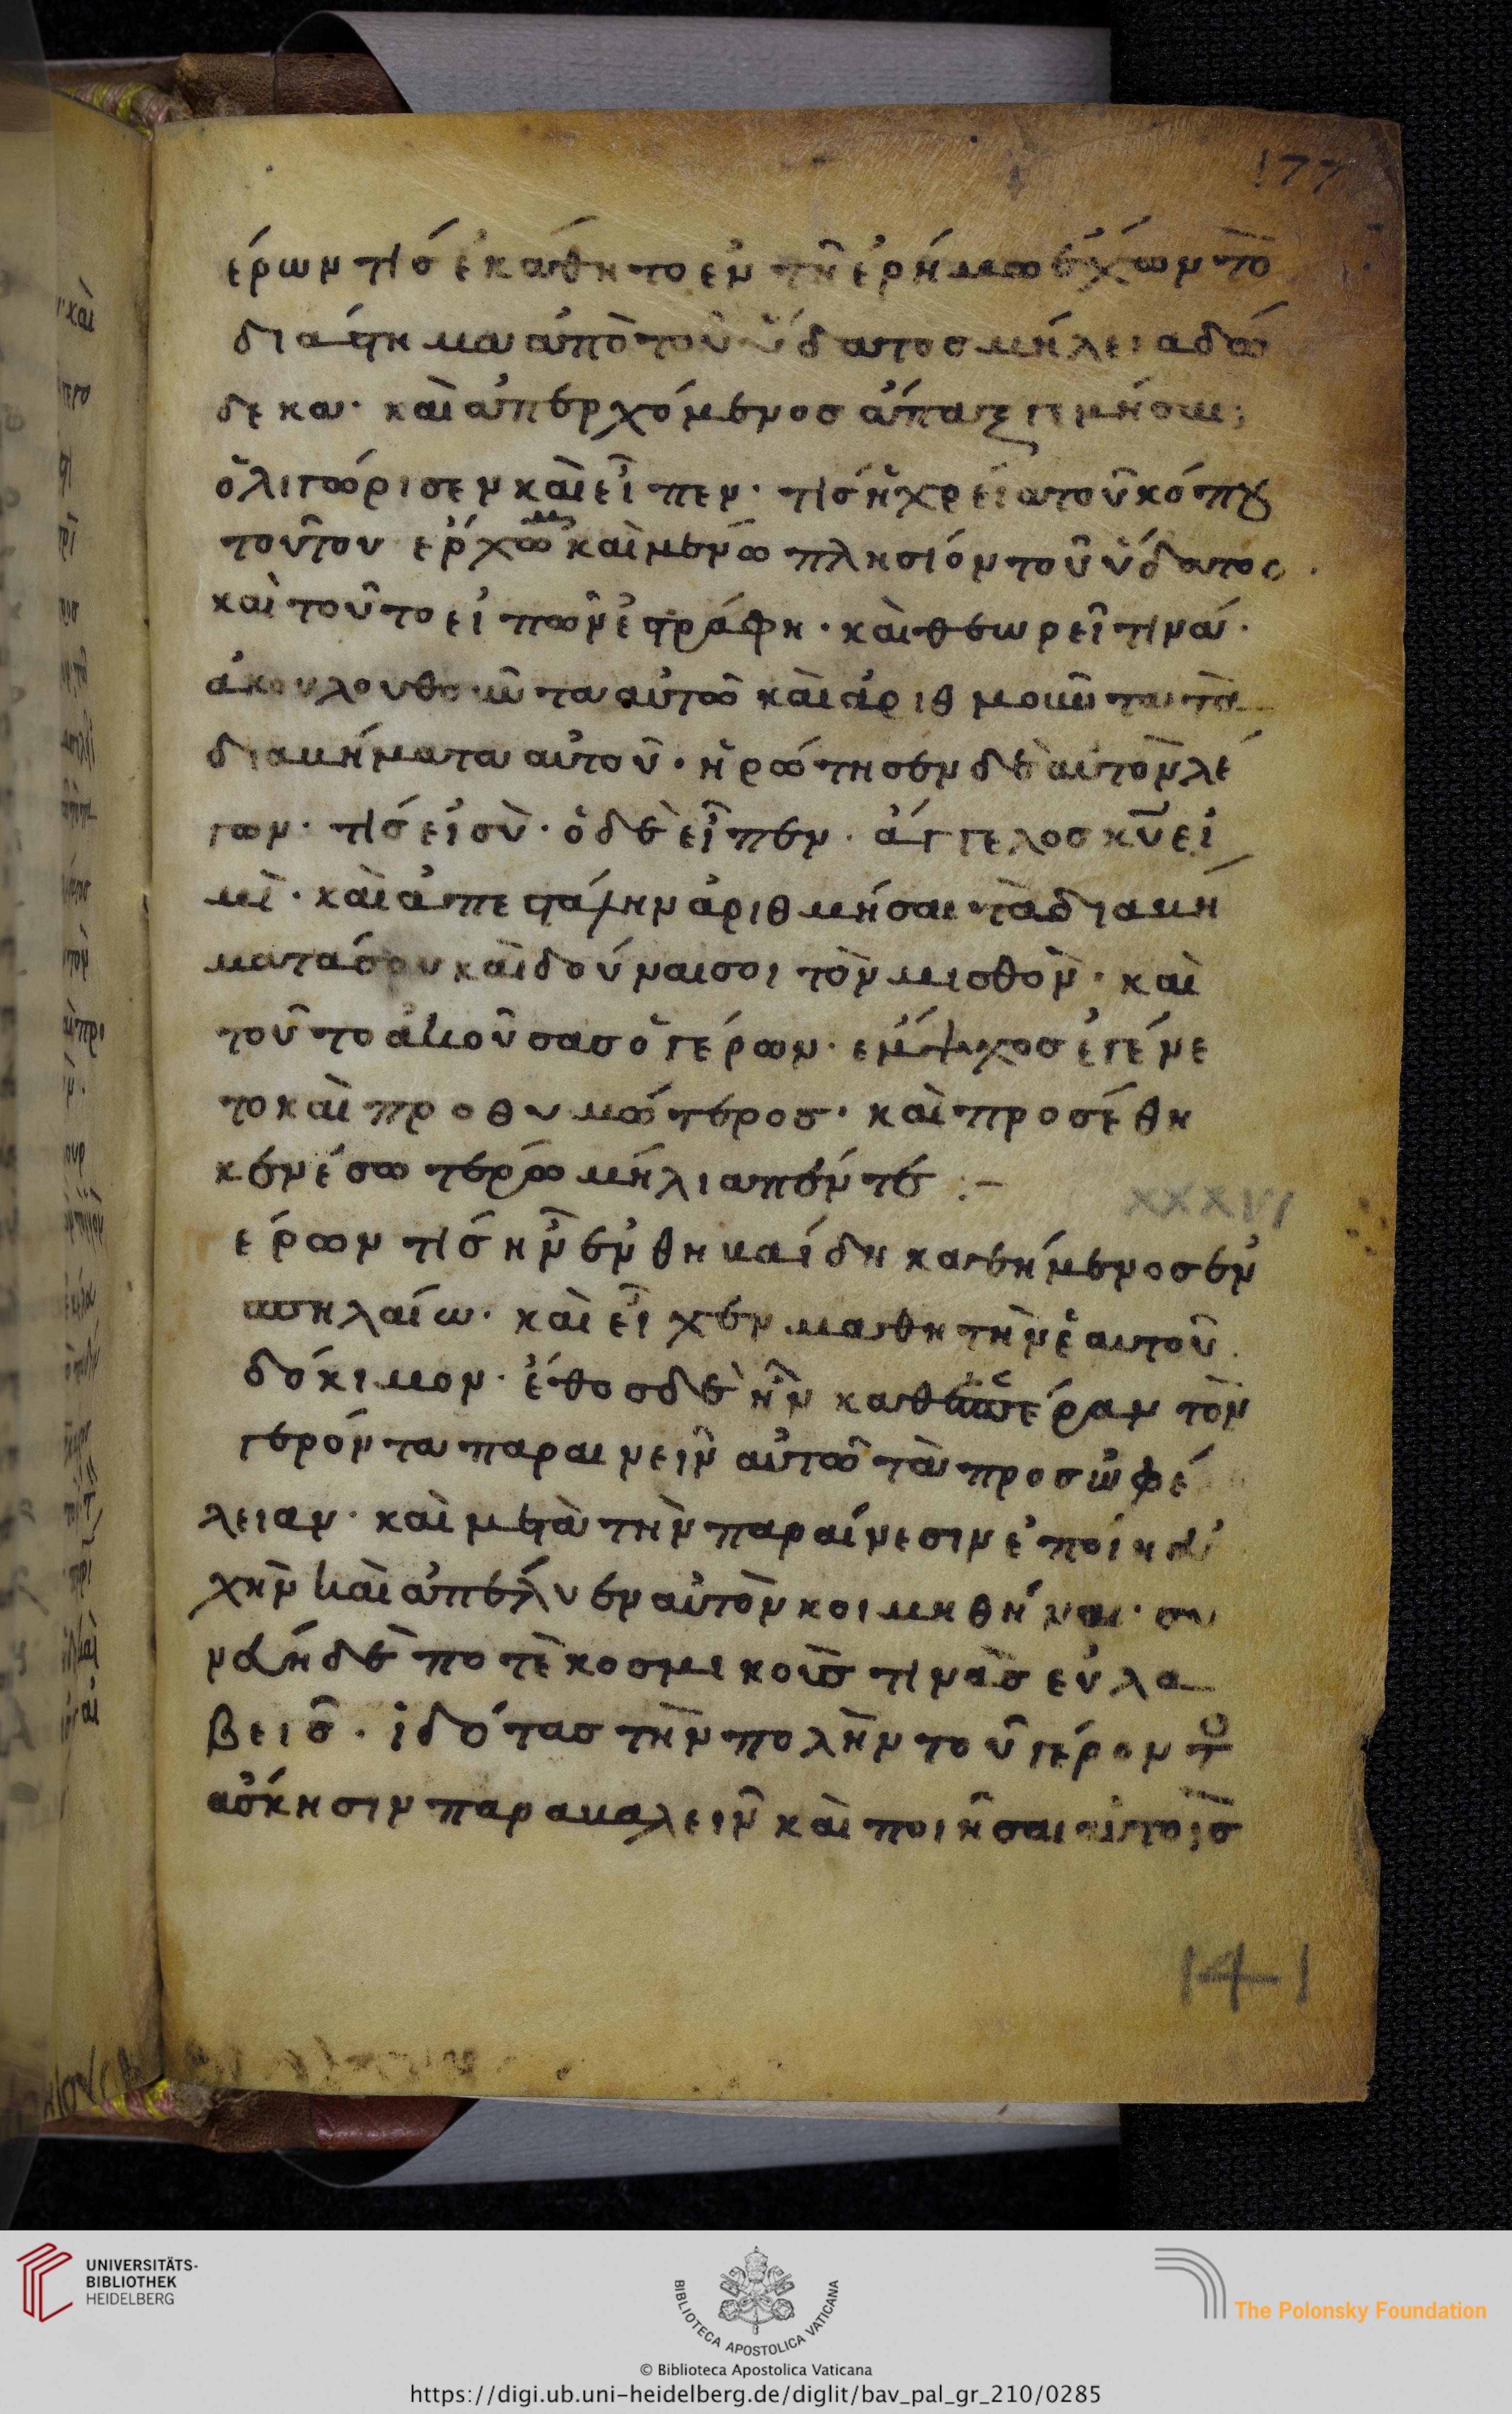 177
έρων τίς ἐκάθητο εν τῆ ἐρήμω ἔχων τὸ
διάστημα ἀπὸ τοῦ ὕδατος μήλεια δώ
δεκα· καὶ ἀπερχόμενος ἅπαξ γεμήσαι;
ὀλιγώρισεν καὶ εἶπεν· τίς ἡ χρεία τοῦ κόπου
τοῦτου ἐρχωμ καὶ μένω πλησίον τοῦ ὕδατος.
καὶ τοῦτο εἰπὼν ἐστράφη· καὶ θεωρεῖ τινά·
ἀκουλουθοῦντα αὐτῶ καὶ ἀριθμοῦντα τὰ
διαμήματα αὐτοῦ· ἠρώτησεν δὲ αὐτὸν λέ
γων· τίς εἰ σὺ· ὁ δὲ εἶπεν· ἄγγελος κ̅υ̅ εἰ
μὶ· καὶ ἀπεστάλην ἀριθμήσαι τὰ διαμή
ματά σου καὶ δούναι σοι τὸν μισθὸν· καὶ
τοῦτο ἀκοῦσας ὁ γέρων· εμψυχος ἐγένε
το καὶ προθυμώτερος· καὶ προσέθη
κεν ἐσωτέρω μήλια πέντε :-
XXXVI
έρων τίς ἦν ἐν θηκαίδη καθήμενος ἐν
σπηλαίω· καὶ εἶχεν μαθητὴν ἑαυτοῦ
δόκιμον· ἔθος δὲ ἦν καθ ἑσπέραν τὸν
γερόντα παραινεῖν αὐτῶ τὰ προς ὠφέ
λειαν· καὶ μετὰ τὴν παραίνεσιν ἐποίη εὐ
χὴν καὶ ἀπέλυεν αὐτὸν κοιμηθήναι· συ
νέβη δὲ ποτὲ κοσμικοὺς τινὰς εὐλα
βεις· ἰδότας τὴν πολὴν τοῦ γέροντο
ασκησιν παρακαλεῖν καὶ ποιῆσαι αὐτοῖς
141
UNIVERSITÄTS-
BIBLIOTHEK
HEIDELBERG
BIBLIOTECA APOSTOLICA VATICANA
The Polonsky Foundation
© Biblioteca Apostolica Vaticana
https://digi.ub.uni-heidelberg.de/diglit/bav_pal_gr_210/0285